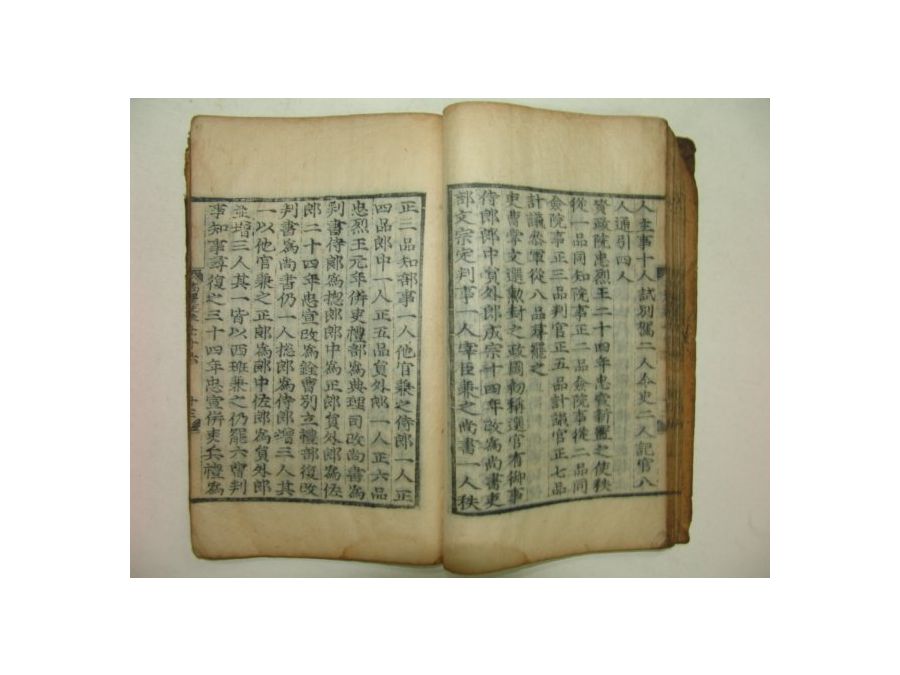 人主事十人試別駕二人令史二人記官八
人通引四人
資政院忠烈王二十四年忠宣新置之使秩
從一品同知院事正二品僉院事從二品同
僉院事正三品判官正五品計議官正七品
計議叅軍從八品尋罷之
吏曹掌文選勳封之政國初稱選官有御事
侍郎郎中貟外郎成宗十四年改爲尚書吏
部文宗定判事一人宰臣兼之尚書一人秩
正三品知部事一人他官兼之侍郎一人正
四品郎中一人正五品貟外郎一人正六品
忠烈王元年併吏禮部爲典理司改尚書爲
判書侍郎爲摠郎郎中爲正郎貟外郎爲佐
郎二十四年忠宣改爲銓曹別立禮部復改
判書爲尚書仍一人摠郎爲侍郎增三人其
一以他官兼之正郎爲郎中佐郎爲貟外郎
並增三人其一皆以西班兼之仍罷六曹判
事知事尋復之三十四年忠宣併吏兵禮爲
十三